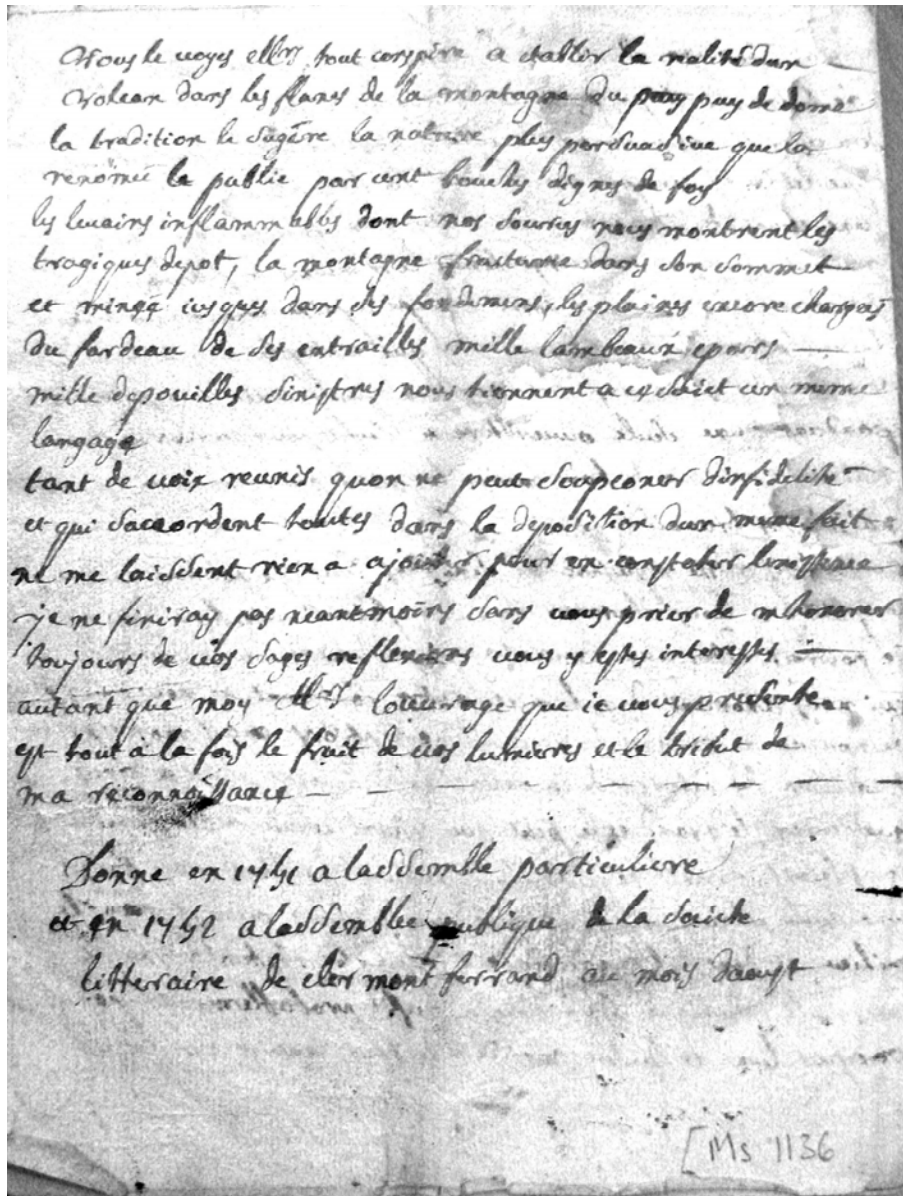 Vous le voyes Mrs tout conspire a etablir la realité dun
Volcan dans les flancs de la montagne du puy de dome
la tradition le sugere la nature plus persuasive que la
renomee le publie par cent bouches dignes de foy
les levains inflammables dont nos sources nous montrent les
tragiques depot, la montagne dans son sommet
et minee iusques dans ses fondemens, les plaines encore chargees
du fardeau de ses entrailles mille lambeaux epars —
mille depouilles sinistres nous tiennent a ce suiet un meme
langage
tant de voix reunis quon ne peut soupconner dinfidelité
et qui saccordent toutes dans la deposition dun meme fait
ne me laissent rien a ajouter pour en constater lexistence
je ne finiray pas neantmoins sans vous prier de mhonorer
toujours de vos sages reflexions vous y estes interesses —
autant que moy Mrs louvrage que ie vous presente
est tout a la fois le fruit de vos lumieres et le tribut de
ma reconnoissance — — — — — — —
Donne en a lassemble particuliere
et en 1752 a lassemblee publique de la societe
litteraire de clermont ferrand au mois daoust
[Ms 1136